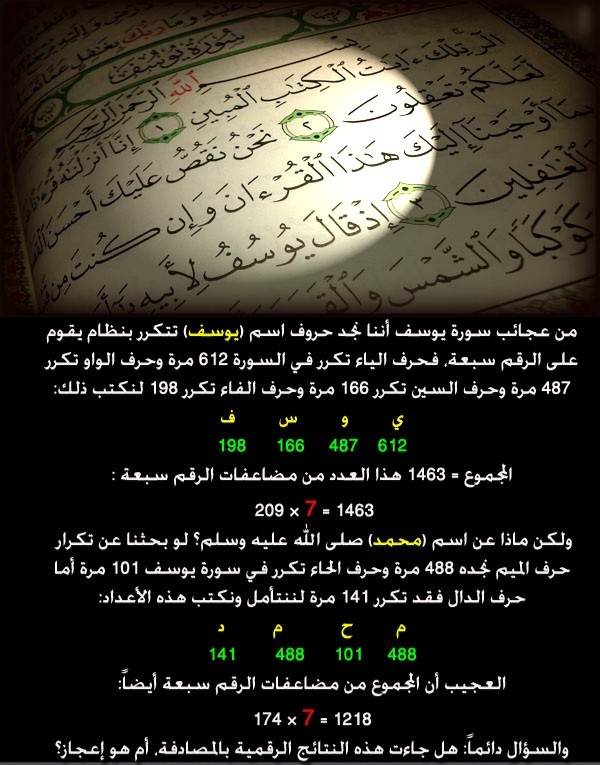 سورة يوسف
بسم الله الرحمن الرحيم
الٓر تِلْكَ ءَايَٰتُ ٱلْكِتَٰبِ ٱلْمُبِينِ ١ إِنَّآ أَنزَلْنَٰهُ
لَّعَلَّكُمْ تَعْقِلُونَ ٢ نَحْنُ نَقُصُّ عَلَيْكَ أَحْسَنَ
بِمَآ أَوْحَيْنَآ إِلَيْكَ هَٰذَا ٱلْقُرْءَانَ وَإِن كُنتَ مِن
ٱلْغَٰفِلِينَ ٣ إِذْ قَالَ يُوسُفُ لِأَبِيهِ
كَوْكَبًا وَٱلشَّمْسَ
من عجائب سورة يوسف أننا نجد حروف اسم (يوسف) تتكرر بنظام يقوم
على الرقم سبعة، فحرف الياء تكرر في السورة 612 مرة وحرف الواو تكرر
487 مرة وحرف السين تكرر 166 مرة وحرف الفاء تكرر 198 لنكتب ذلك:
ي و س ف
612 487 166 198
المجموع = 1463 هذا العدد من مضاعفات الرقم سبعة :
1463 = 7 × 209
ولكن ماذا عن اسم (محمد) صلى الله عليه وسلم؟ لو بحثنا عن تكرار
حرف الميم نجده 488 مرة وحرف الحاء تكرر في سورة يوسف 101 مرة أما
حرف الدال فقد تكرر 141 مرة لننتأمل ونكتب هذه الأعداد:
م ح م د
488 101 488 141
العجيب أن المجموع من مضاعفات الرقم سبعة أيضاً:
1218 = 7 × 174
والسؤال دائماً: هل جاءت هذه النتائج الرقمية بالمصادفة، أم هو إعجاز؟